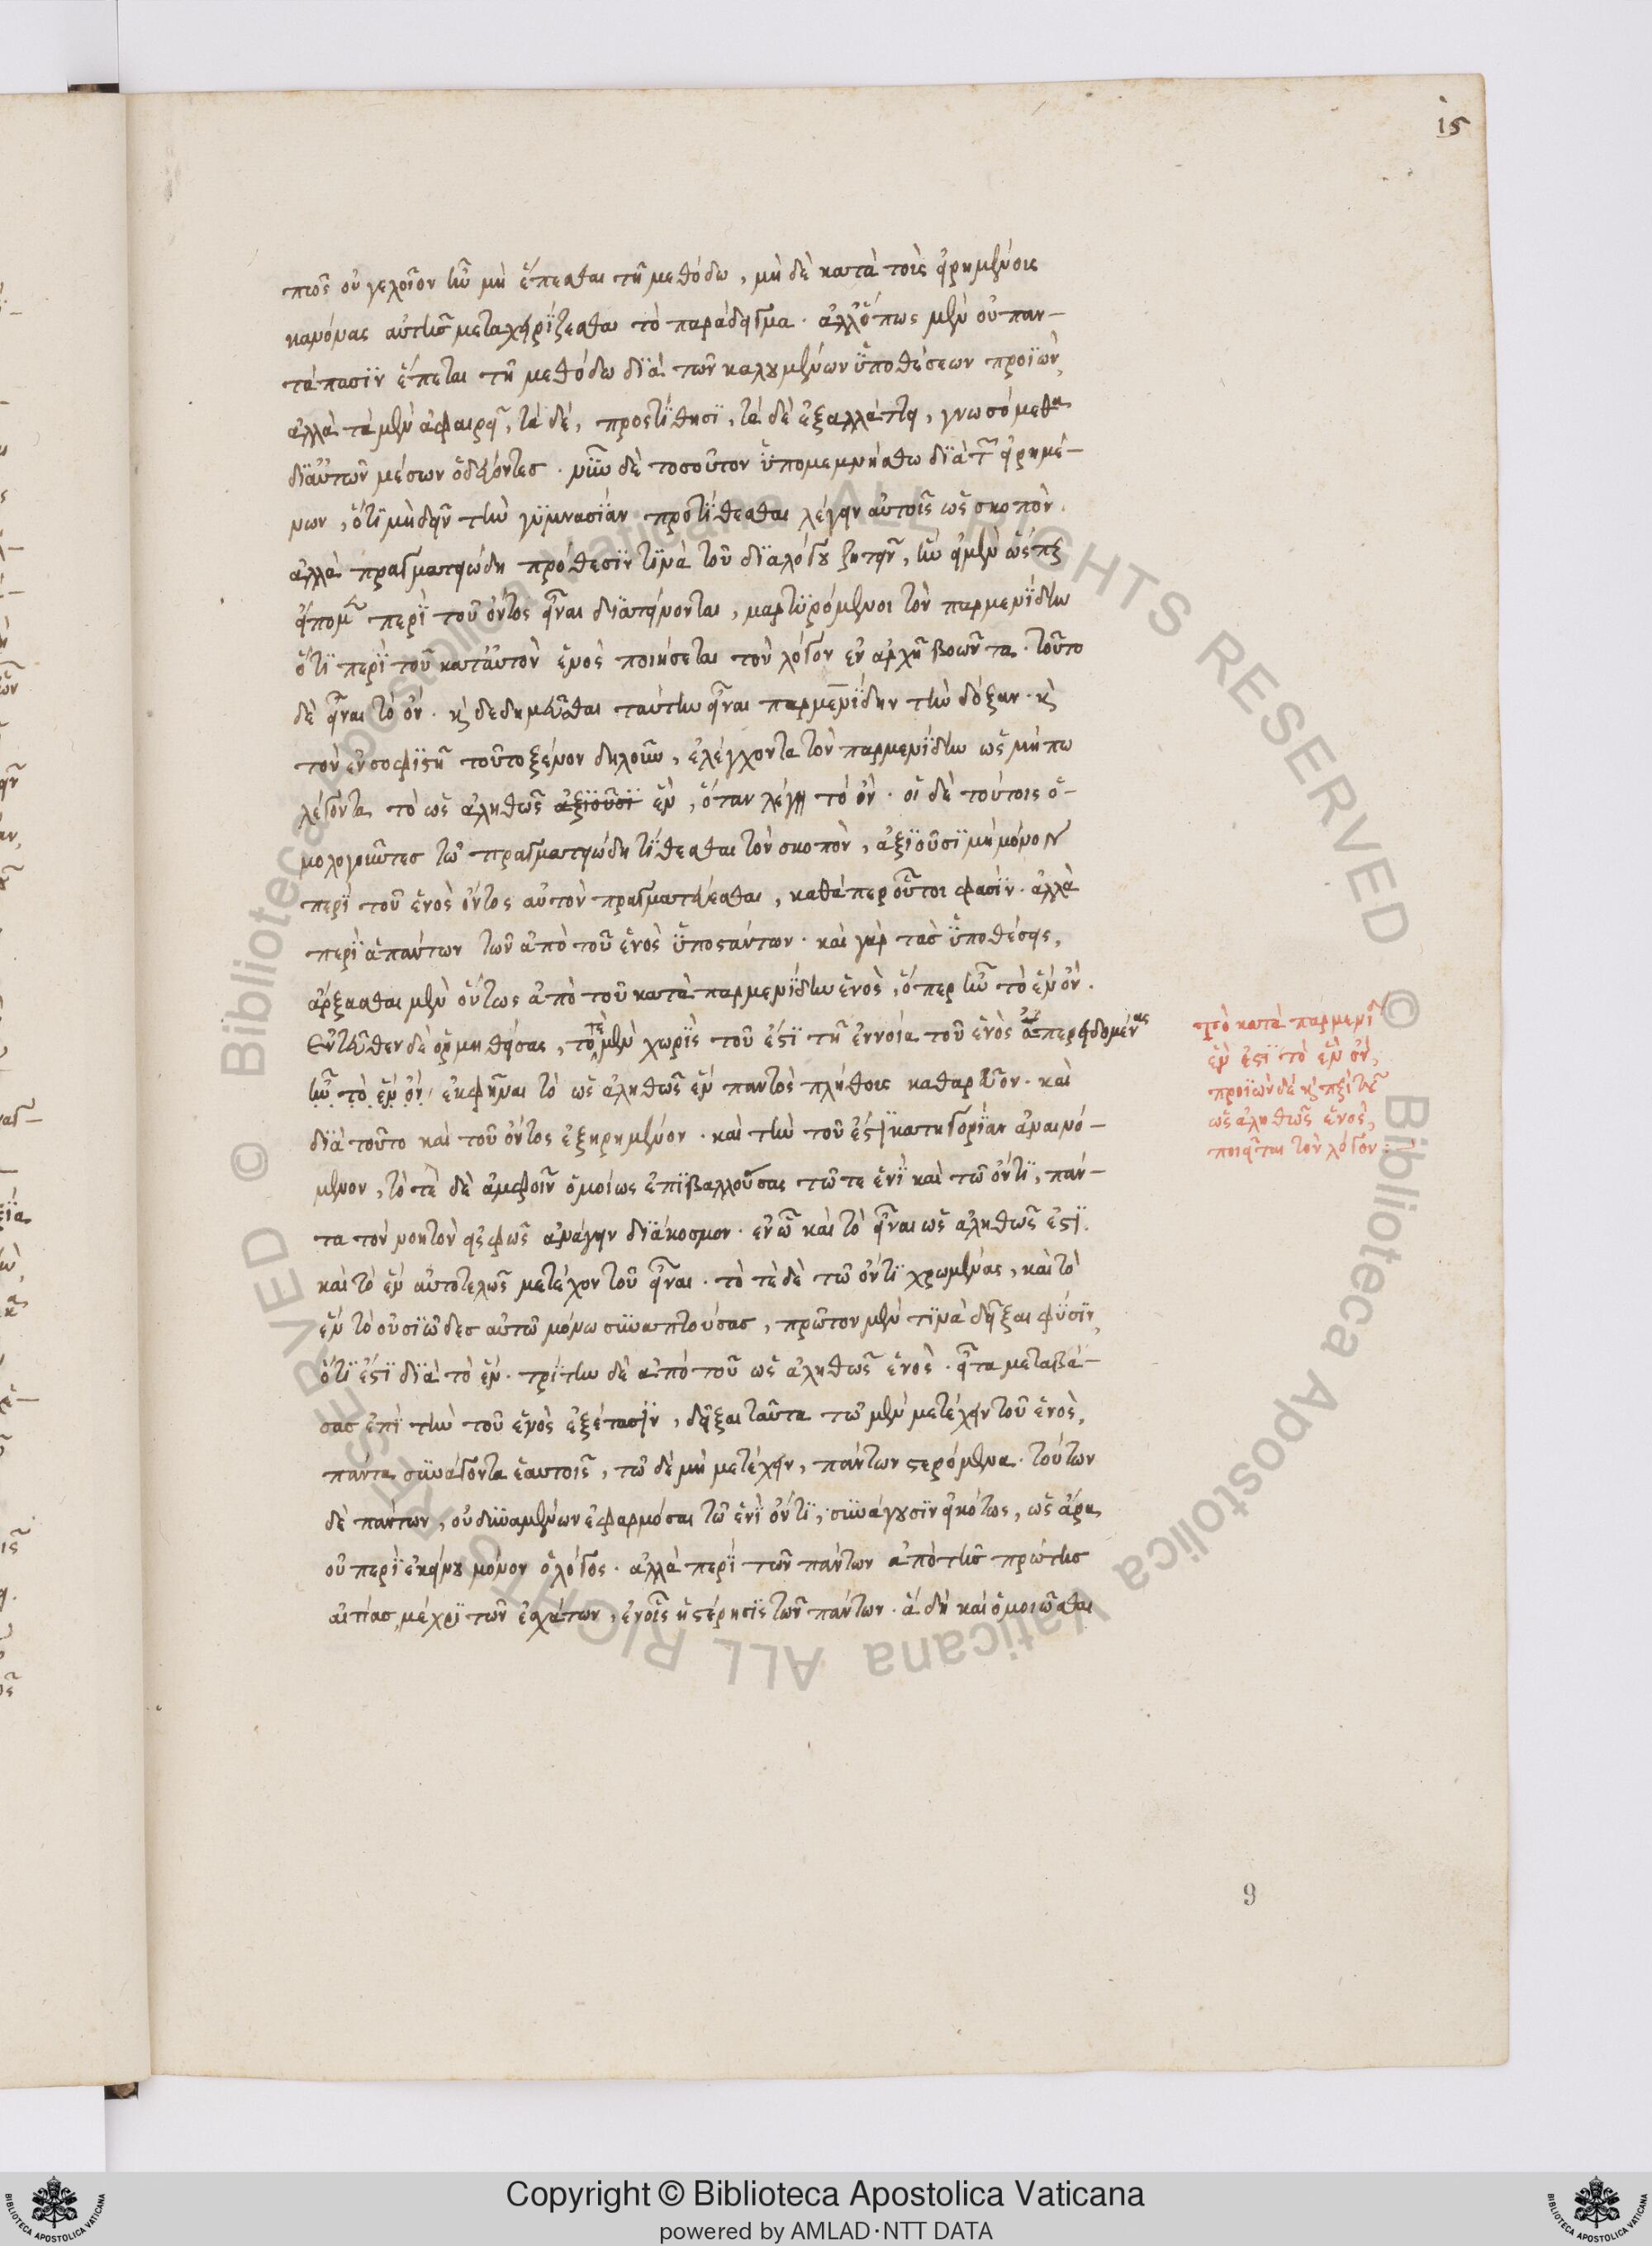 ις
πῶς οὐ γελοῖον ἦν μὴ ἕπεσθαι τῇ μεθόδῳ, μὴ δὲ κατὰ τοὺς εἰρημένους
κανόνας αὐτῆς μεταχειρίζεσθαι τὸ παράδειγμα. ἀλλ' ὅπως μὲν οὐ παν-
τάπασιν ἕπεται τῇ μεθόδω διὰ τῶν καλουμένων ὑποθέσεων προϊὼν,
ἀλλὰ τὰ μὲν ἀφαιρεῖ, τὰ δὲ, προστίθησι, τὰ δὲ ἐξαλλάττει, γνωσόμεθα
δι' αὐτῶν μέσων ὁδεύοντες. νῦν δὲ τοσοῦτον ὑπομεμνήσθω διὰ τῶν εἰρημέ-
νων, ὅτι μὴ δεῖν τὴν γυμνασίαν προστίθεσθαι λέγειν αὐτοῖς ὡς σκοπὸν.
ἀλλὰ πραγματειώδη πρόθεσιν τινὰ τοῦ διαλόγου ζητεῖν, ἣν οἱ μὲν ὥσπερ
εἴπομεν περὶ τοῦ ὄντος εἶναι διατείνονται, μαρτυρόμενοι τὸν παρμενίδην
ὅτι περὶ τοῦ κατ' αὐτὸν ἑνὸς ποιήσεται τὸν λόγον ἐν ἀρχῇ βοῶντα. τοῦτο
δὲ εἶναι τὸ ὄν. καὶ δεδημεῦσθαι ταύτην εἶναι παρμενίδην τὴν δόξαν. καὶ
τὸν ἐν σοφιστῇ τοῦτο ξένον δηλοῦν, ἐλέγχοντα τὸν παρμενίδην ὡς μήπω
λέγοντα τὸ ὡς ἀληθῶς ἀξιοῦσι ἓν, ὅταν λέγῃ τὸ ὄν. οἱ δὲ τούτοις ὁ-
μολογοῦντες τῶ πραγματειώδη τίθεσθαι τὸν σκοπὸν, ἀξιοῦσι μὴ μόνον
περὶ τοῦ ἑνὸς ὄντος αὐτὸν πραγματεύεσθαι, καθάπερ οὗτοι φασὶν. ἀλλὰ
περὶ ἁπάντων τῶν ἀπὸ τοῦ ἑνὸς ὑποστάντων. καὶ γὰρ τὰς ὑποθέσεις,
ἄρξασθαι μὲν ὄντως ἀπὸ τοῦ κατὰ παρμενίδην ἑνὸς, ὅπερ ἦν τὸ ἓν ὄν.
Ἐντεῦθεν δὲ ὁρμηθείσας, τοτὲ μὲν χωρὶς τοῦ ἐστὶ τῇ ἐννοία τοῦ ἑνὸς ἐπερειδομένας
ἦν τὸ ἓν ὄν ἐκφῆναι τὸ ὡς ἀληθῶς ἓν παντὸς πλήθους καθαρεῦον. καὶ
διὰ τοῦτο καὶ τοῦ ὄντος ἐξηρημένον. καὶ τὴν τοῦ ἐστὶ κατηγορίαν ἀναινό-
μενον, τὸ τὲ δὲ ἀμφοῖν ὁμοίως ἐπιβαλλούσας τῶ τε ἑνὶ καὶ τῶ ὄντι, πάν-
τα τὸν νοητὸν εἰς φῶς ἀνάγειν διάκοσμον. ἐν ὧ καὶ τὸ εἶναι ὡς ἀληθῶς ἐστὶ.
καὶ τὸ ἓν αὐτοτελῶς μετέχον τοῦ εἶναι. τὸ τὲ δὲ τῶ ὄντι χρωμένας, καὶ τὸ
ἓν τὸ οὐσιῶδες αὐτῶ μόνω συναπτούσας, πρῶτον μὲν τινὰ δεῖξαι φύσιν,
ὅτι ἐστὶ διὰ τὸ ἓν. τρίτην δὲ ἀπὸ τοῦ ὡς ἀληθῶς ἑνὸς. εἶτα μεταβά-
σας ἐπὶ τὴν τοῦ ἑνὸς ἐξέτασιν, δεῖξαι ταῦτα τῶ μὲν μετέχειν τοῦ ἑνὸς,
πάντα συνάγοντα ἑαυτοῖς, τῶ δὲ μὴ μετέχειν, πάντων στερόμενα. τούτων
δὲ πάντων, οὐ δυναμένων ἐφαρμόσαι τῶ ἑνὶ ὄντι, συνάγουσιν εἰκότως, ὡς ἄρα
οὐ περὶ ἐκείνου μόνον ὁ λόγος. ἀλλὰ περὶ τῶν πάντων ἀπὸ τῆς πρώτης
αἰτίας, μέχρι τῶν ἐσχάτων, ἐν οἷς ἡ στέρησις τῶν πάντων. ἃ δὴ καὶ ὁμοιῶσθαι
τὸ κατὰ παρμενί
ἓν ἐστὶ τὸ ἓν ὄν,
προϊὼν δὲ καὶ περὶ τοῦ
ὡς ἀληθῶς ἑνὸς,
ποιεῖται τὸν λόγον:
9
© Biblioteca Apostolica Vaticana ALL RIGHTS RESERVED © Biblioteca Apostolica Vaticana ALL RIGHTS RESERVED
Copyright © Biblioteca Apostolica Vaticana
powered by AMLAD·NTT DATA
BIBLIOTECA APOSTOLICA VATICANA
BIBLIOTECA APOSTOLICA VATICANA